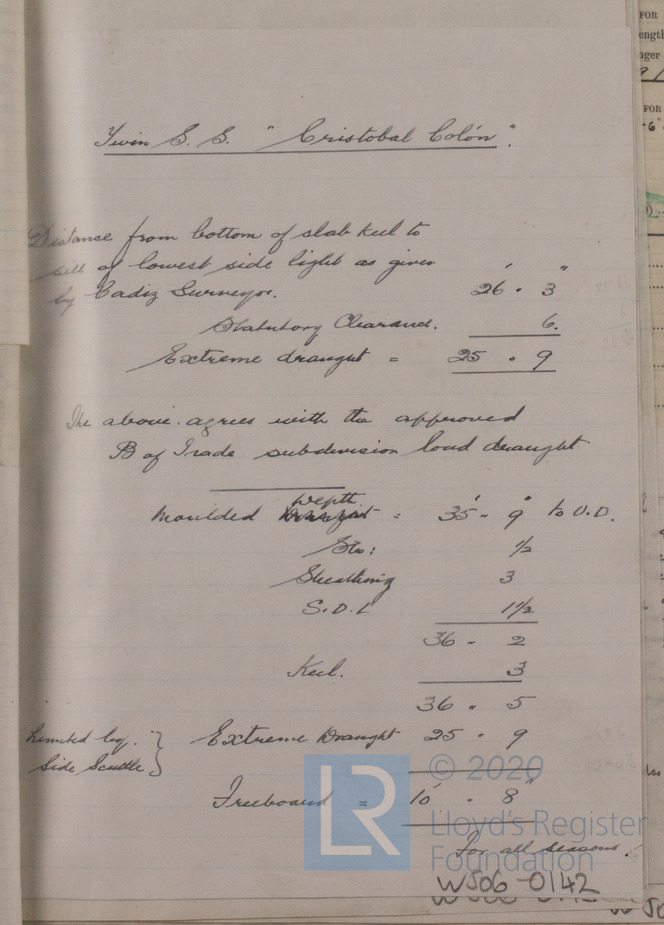 Twin S. S. "Cristobal Colón".
Distance from bottom of slab keel to
sill of lowest side light as given
by Cadiz Surveyor. 26' . 3"
Statutory Clearance. 6.
Extreme draught = 25 . 9
The above agrees with the approved
B of Trade subdivision load draught
Depth
Moulded = 35' . 9" to U.D.
Str: 1/2
Sheathing 3
S.D.L 1 1/2
36 - 2
Keel. 3
36 . 5
Limited by Side Scuttle } Extreme Draught 25 . 9
Freeboard = 10' . 8"
For all seasons!
© 2020
Lloyd's Register
Foundation
LR
WS06-0142
FOR
FOR